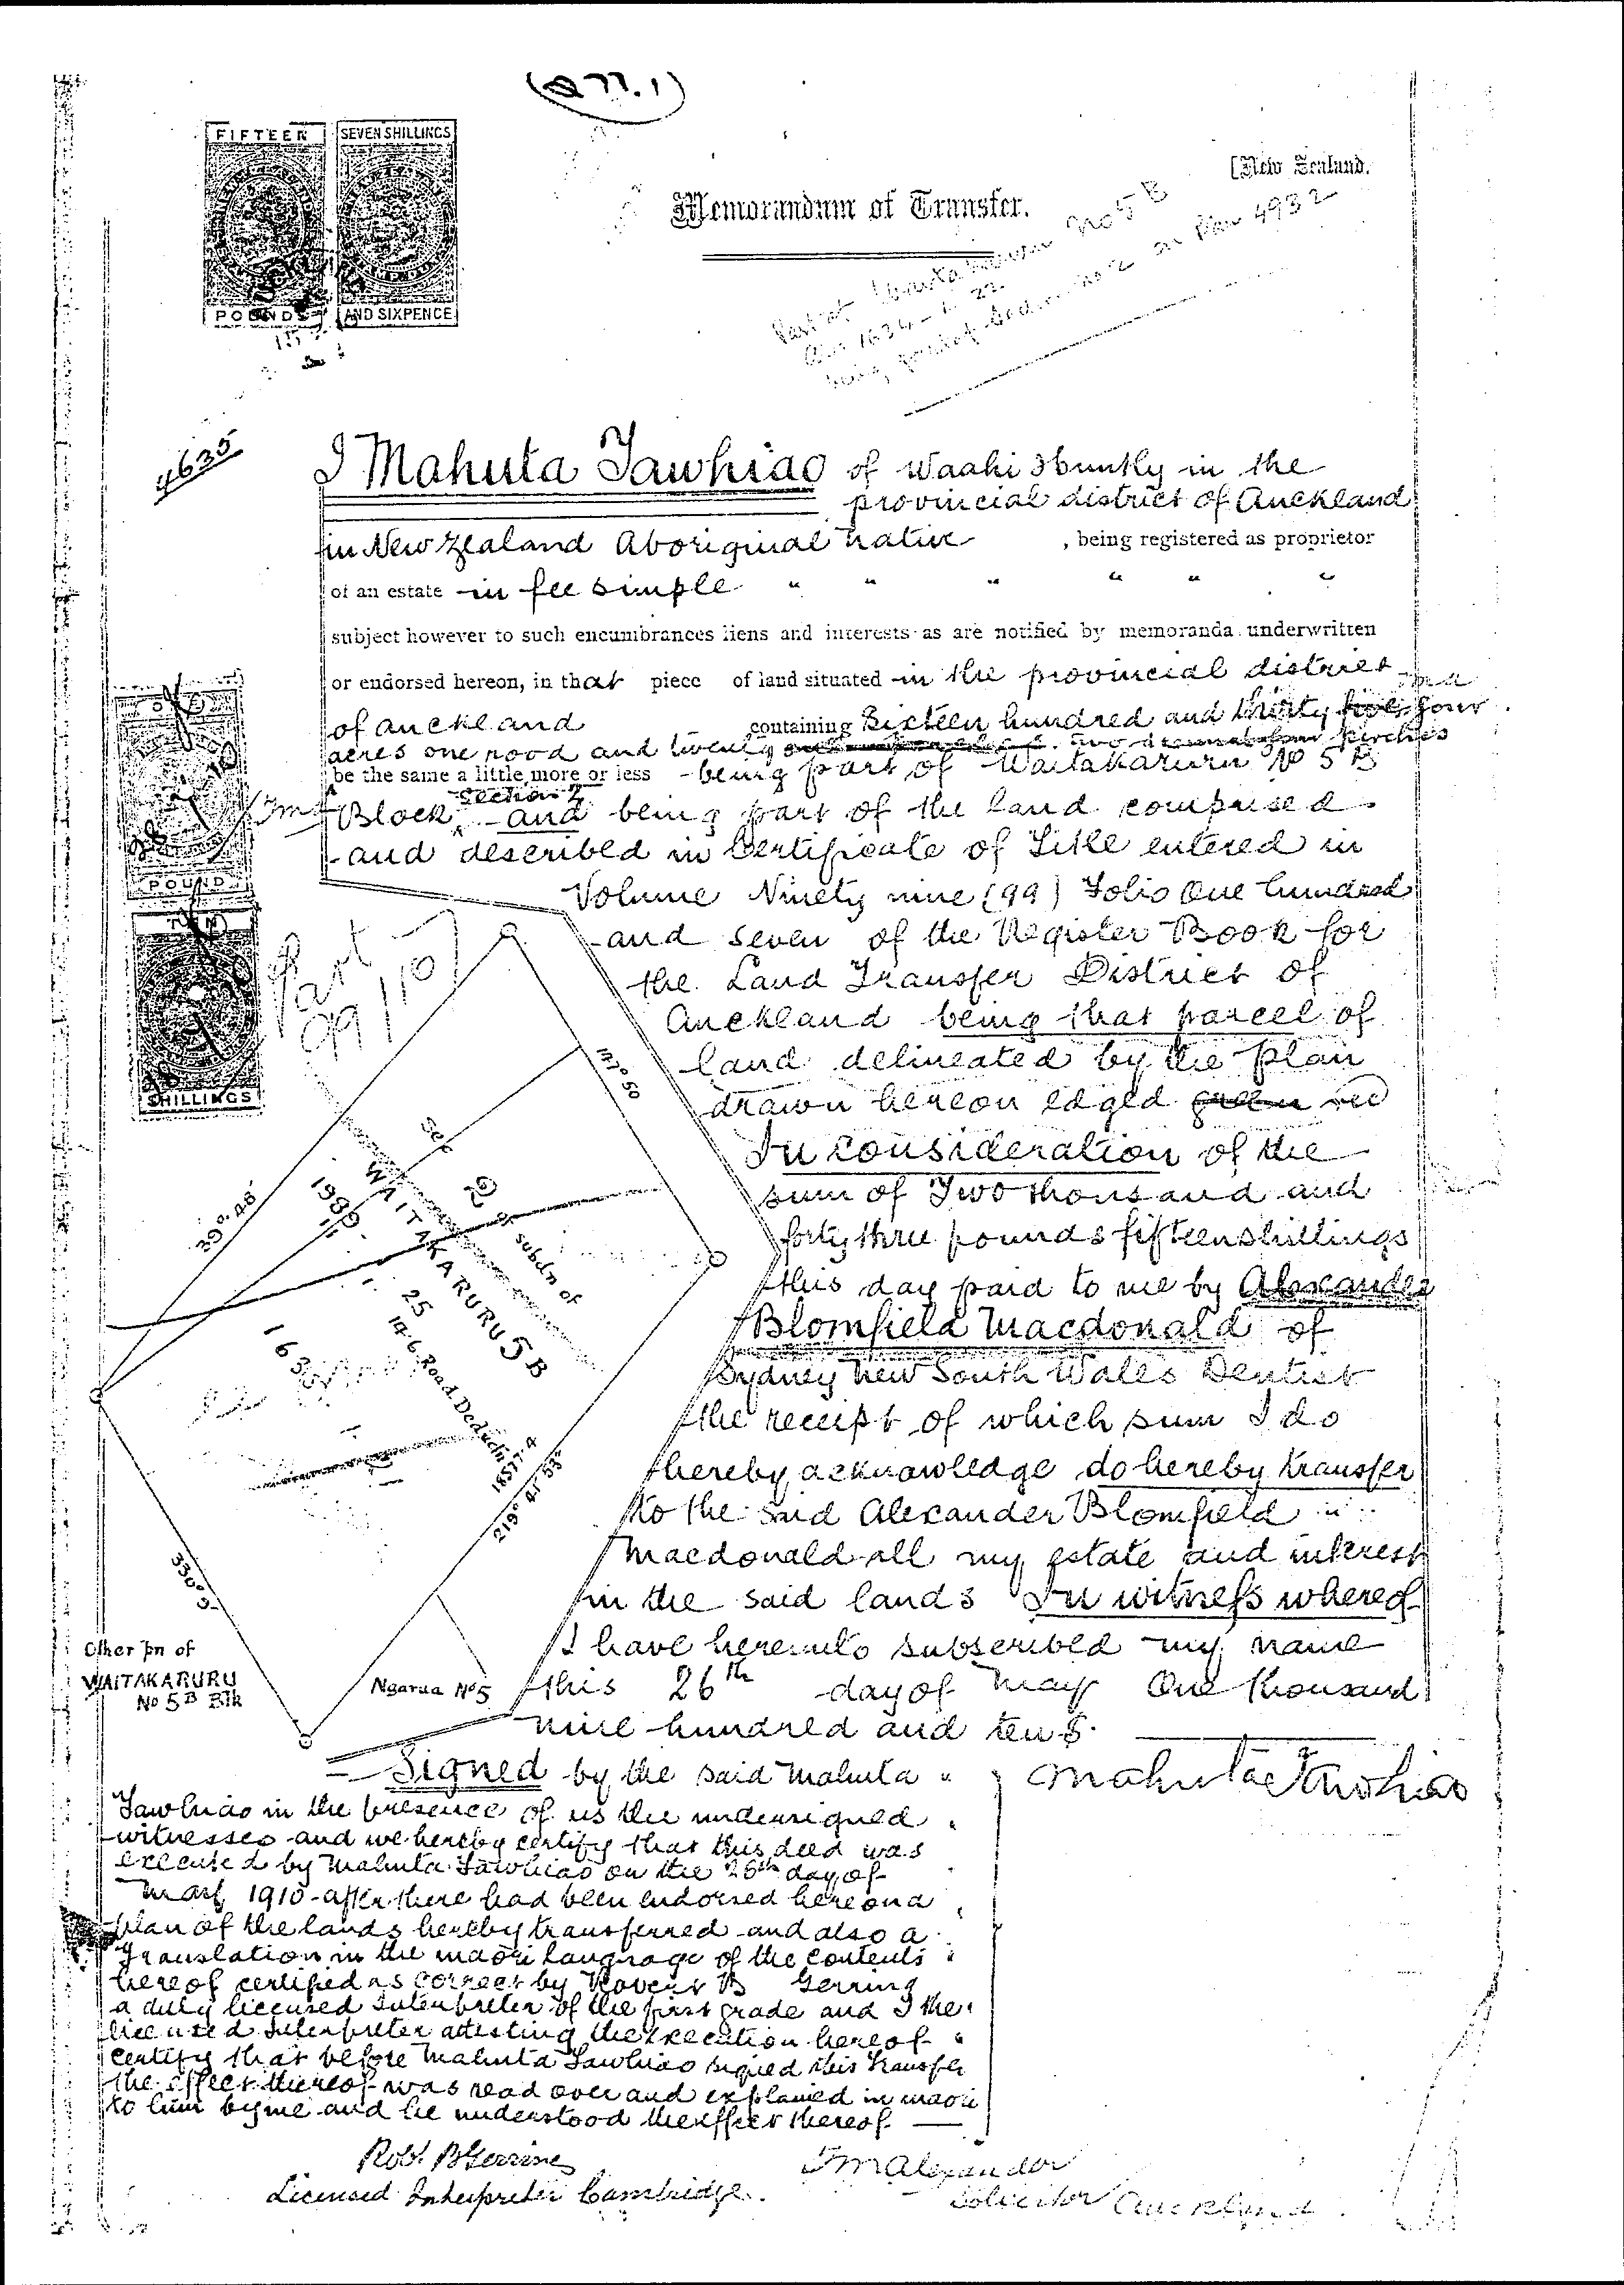 FIFTEEN POUNDS
SEVEN SHILLINGS AND SIXPENCE
[New Zealand.
Memorandum of Transfer.
No 5 B
on Plan 4932
4635
I Mahuta Tawhiao of Waahi Huntly in the
provincial district of Auckland
in New Zealand Aboriginal Native , being registered as proprietor
of an estate in fee simple " " " " " "
subject however to such encumbrances liens and interests as are notified by memoranda underwritten
or endorsed hereon, in that piece of land situated in the provincial district
of Auckland containing Sixteen hundred and thirty five four
acres one rood and twenty two decimal four perches
be the same a little more or less being part of Waitakaruru No 5 B
Section 2
Block and being part of the land comprised
and described in Certificate of Title entered in
Volume Ninety nine (99) Folio One hundred
and seven of the Register Book for
the Land Transfer District of
Auckland being that parcel of
land delineated by the plan
drawn hereon edged green red
In consideration of the
sum of Two thousand and
forty three pounds fifteen shillings
this day paid to me by Alexander
Blomfield Macdonald of
Sydney New South Wales Dentist
the receipt of which sum I do
hereby acknowledge do hereby transfer
to the said Alexander Blomfield "
Macdonald all my estate and interest
in the said lands In witness whereof
I have hereunto subscribed my name
this 26th day of May One thousand
nine hundred and ten
POUND
SHILLINGS
Part
99/107
147° 50
39° 48
Sec 2
subdn of
WAITAKARURU 5B
14.6 Road Deductn
1657.4
219° 41' 53"
330° 3
Other pn of
WAITAKARURU
No 5B Blk
Ngarua No 5
Signed by the said Mahuta "
Tawhiao in the presence of us the undersigned
witnesses and we hereby certify that this deed was
executed by Mahuta Tawhiao on the 26th day of
May 1910 after there had been endorsed hereon a
plan of the lands hereby transferred and also a
Translation in the maori language of the contents
hereof certified as correct by Robert B Gerring
a duly licensed Interpreter of the first grade and I the
licensed Interpreter attesting the execution hereof
certify that before Mahuta Tawhiao signed this Transfer
the effect thereof was read over and explained in maori
to him by me and he understood the effect thereof
Mahuta Tawhiao
Robt. B Gerring
Licensed Interpreter Cambridge.
Alexander
Solicitor Auckland